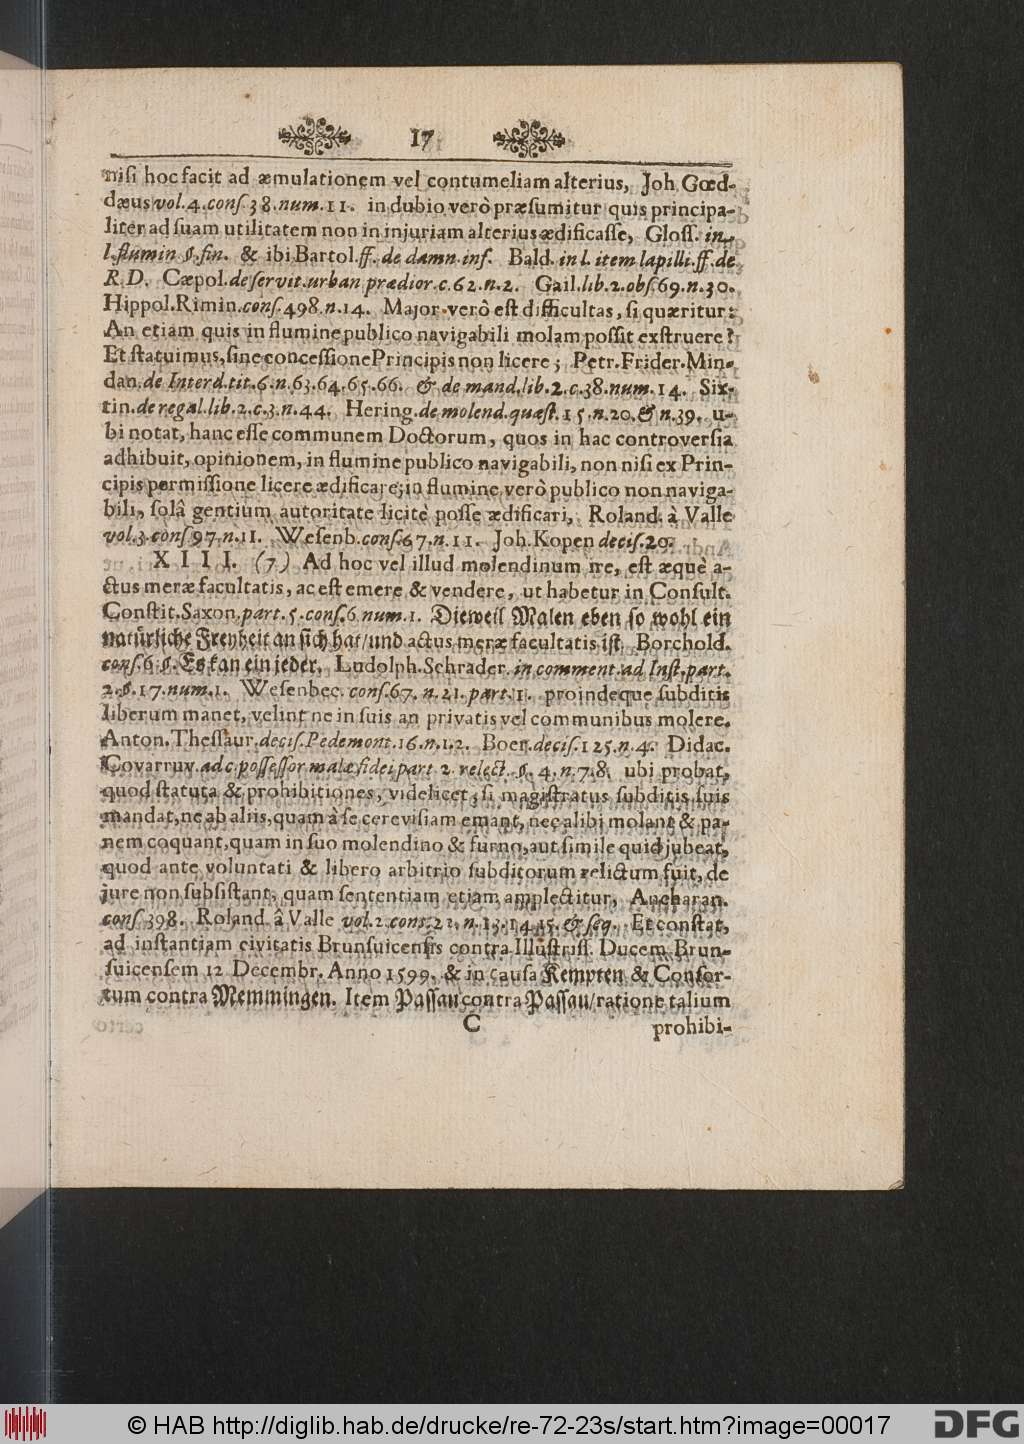 17
nisi hoc facit ad æmulationem vel contumeliam alterius, Joh. Gœd-
dæus vol. 4. cons. 38. num. 11. in dubio verò præsumitur quis principa-
liter ad suam utilitatem non in injuriam alterius ædificasse, Gloss. in
l. flumin. §. fin. & ibi Bartol. ff. de damn. inf. Bald. in l. item lapilli. ff. de
R. D. Cæpol. de servit. urban. prædior. c. 62. n. 2. Gail. lib. 2. obs. 69. n. 30.
Hippol. Rimin. cons. 498. n. 14. Major verò est difficultas, si quæritur:
An etiam quis in flumine publico navigabili molam possit exstruere?
Et statuimus, sine concessione Principis non licere; Petr. Frider. Min-
dan. de Interd. tit. 6. n. 63. 64. 65. 66. & de mand. lib. 2. c. 38. num. 14. Six-
tin. de regal. lib. 2. c. 3. n. 44. Hering. de molend. quæst. 15. n. 20. & n. 39. u-
bi notat, hanc esse communem Doctorum, quos in hac controversia
adhibuit, opinionem, in flumine publico navigabili, non nisi ex Prin-
cipis permissione licere ædificare; in flumine verò publico non naviga-
bili, solâ gentium autoritate licitè posse ædificari, Roland. à Valle
vol. 3. cons. 97. n. 11. Wesenb. cons. 67. n. 11. Joh. Kopen decis. 20.
XIII. (7) Ad hoc vel illud molendinum ire, est æquè a-
ctus meræ facultatis, ac est emere & vendere, ut habetur in Consult.
Constit. Saxon. part. 5. cons. 6. num. 1. Dieweil Malen eben so wohl ein
natürliche Freyheit an sich hat / und actus meræ facultatis ist. Borchold.
cons. 6. §. Es kan ein jeder. Ludolph. Schrader. in comment. ad Inst. part.
2. §. 17. num. 1. Wesenbec. cons. 67. n. 21. part. 1. proindeque subditis
liberum manet, velint ne in suis an privatis vel communibus molere.
Anton. Thessaur. decis. Pedemont. 16. n. 1. 2. Boer. decis. 125. n. 4. Didac.
Covarruv. ad c. possessor malæ fidei part. 2. relect. §. 4. n. 7. 8. ubi probat,
quod statuta & prohibitiones, videlicet, si magistratus subditis suis
mandat, ne ab aliis, quam à se cerevisiam emant, nec alibi molant & pa-
nem coquant, quam in suo molendino & furno, aut simile quid jubeat,
quod ante voluntati & libero arbitrio subditorum relictum fuit, de
jure non subsistant, quam sententiam etiam amplectitur, Ancharan.
cons. 398. Roland. â Valle vol. 2. cons. 22. n. 13. 14. 15. & seq. Et constat,
ad instantiam civitatis Brunsuicensis contra Illustriss. Ducem Brun-
suicensem 12 Decembr. Anno 1599. & in causa Kempten & Consor-
tum contra Memmingen. Item Passau contra Passau / ratione talium
C prohibi-
© HAB http://diglib.hab.de/drucke/re-72-23s/start.htm?image=00017
DFG